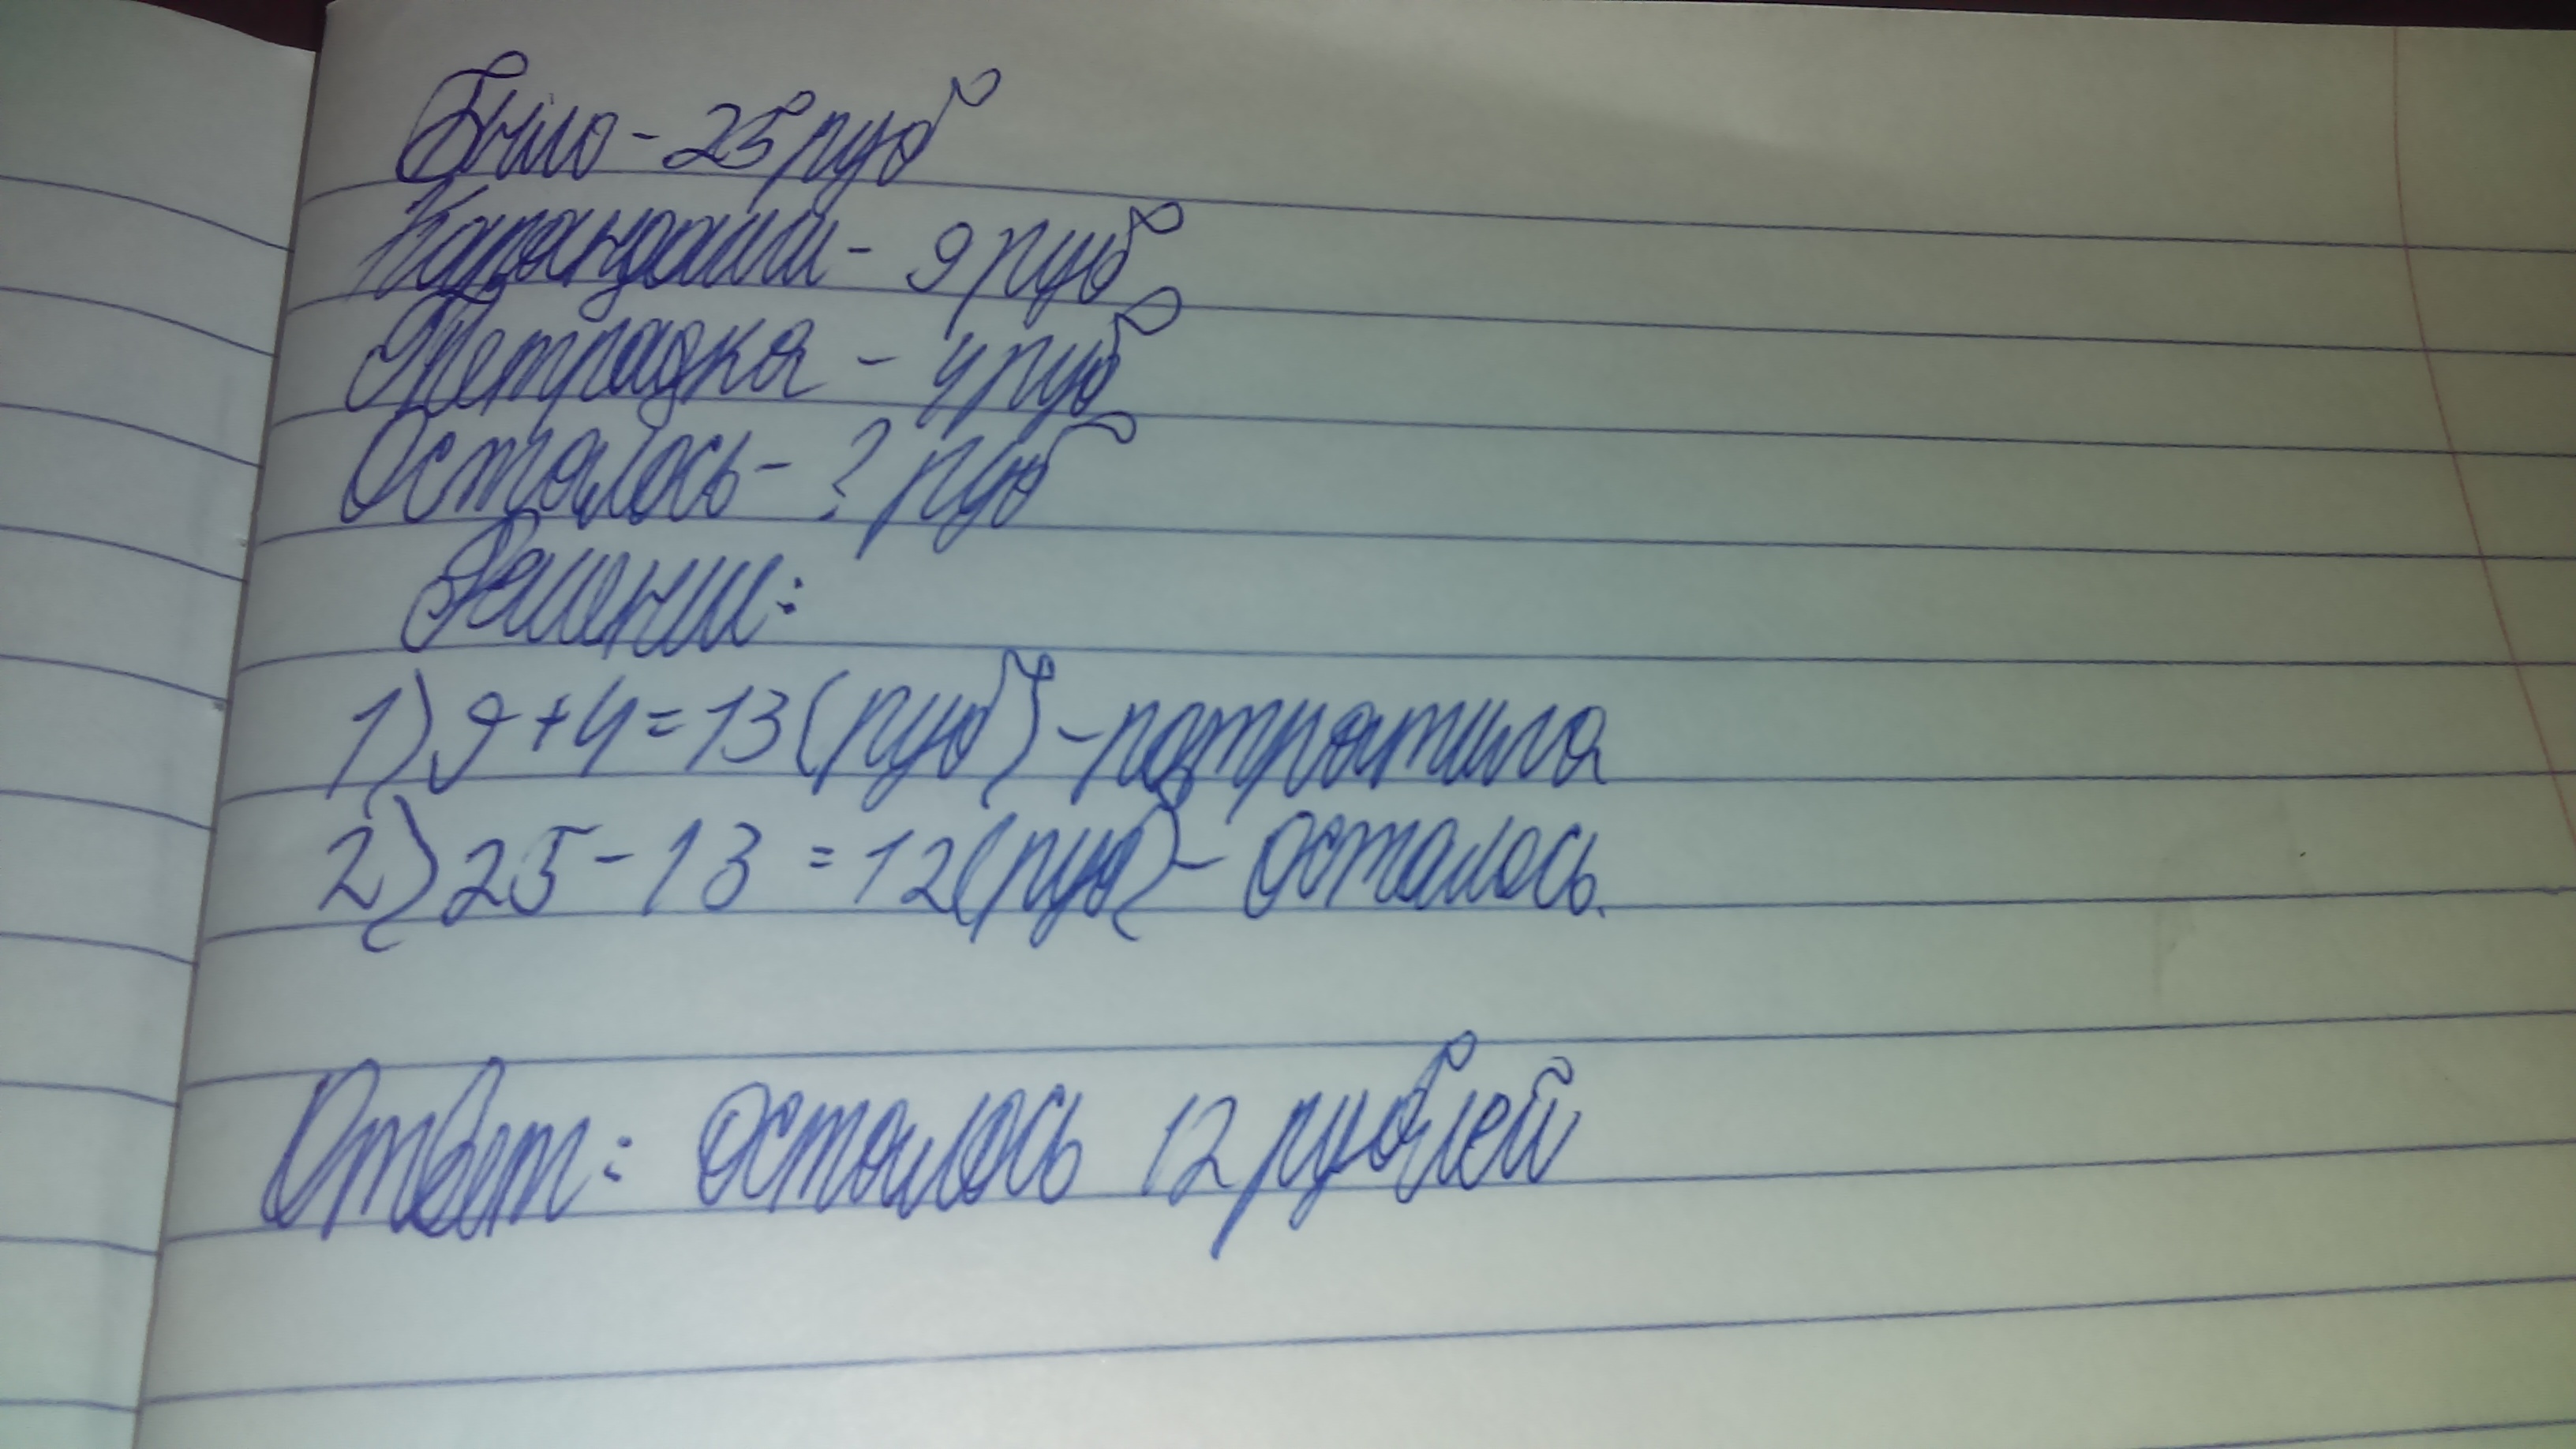 Было - 25 руб
Карандаши - 9 руб
Тетрадка - 4 руб
Осталось - ? руб
Решении:
1) 9+4=13 (руб) - потратила
2) 25-13=12 (руб) - осталось.
Ответ: осталось 12 рублей